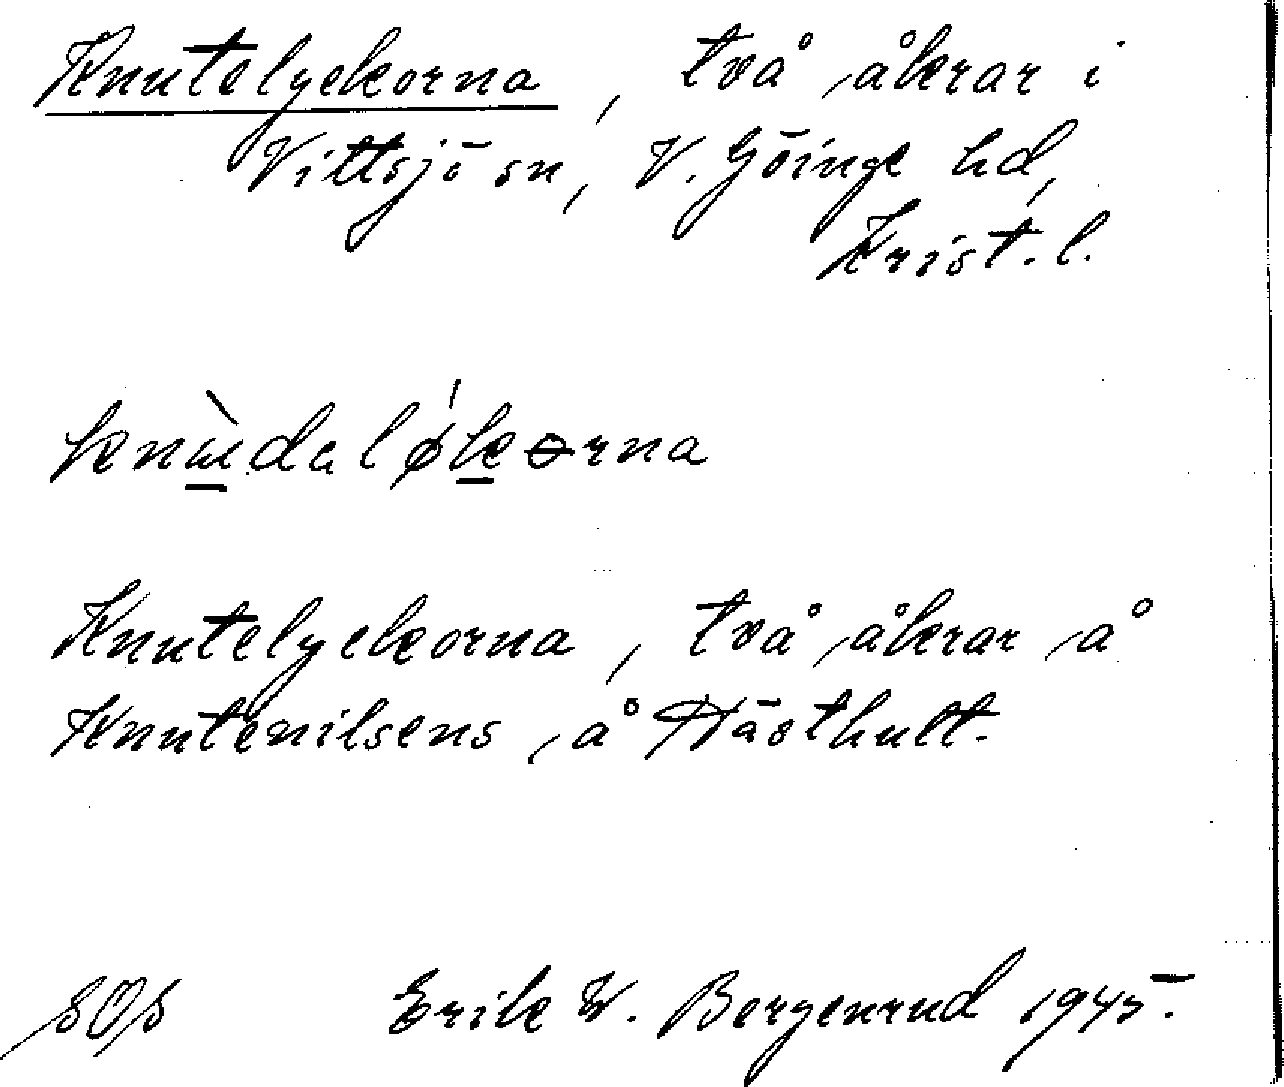 Knutelyckorna, två åkrar i
Vittsjö sn, V. Göinge hd,
Krist. l.
Knutelyckorna, två åkrar å
Knutenilsens, å Hästhult.
Erik W. Bergenrud 1945.